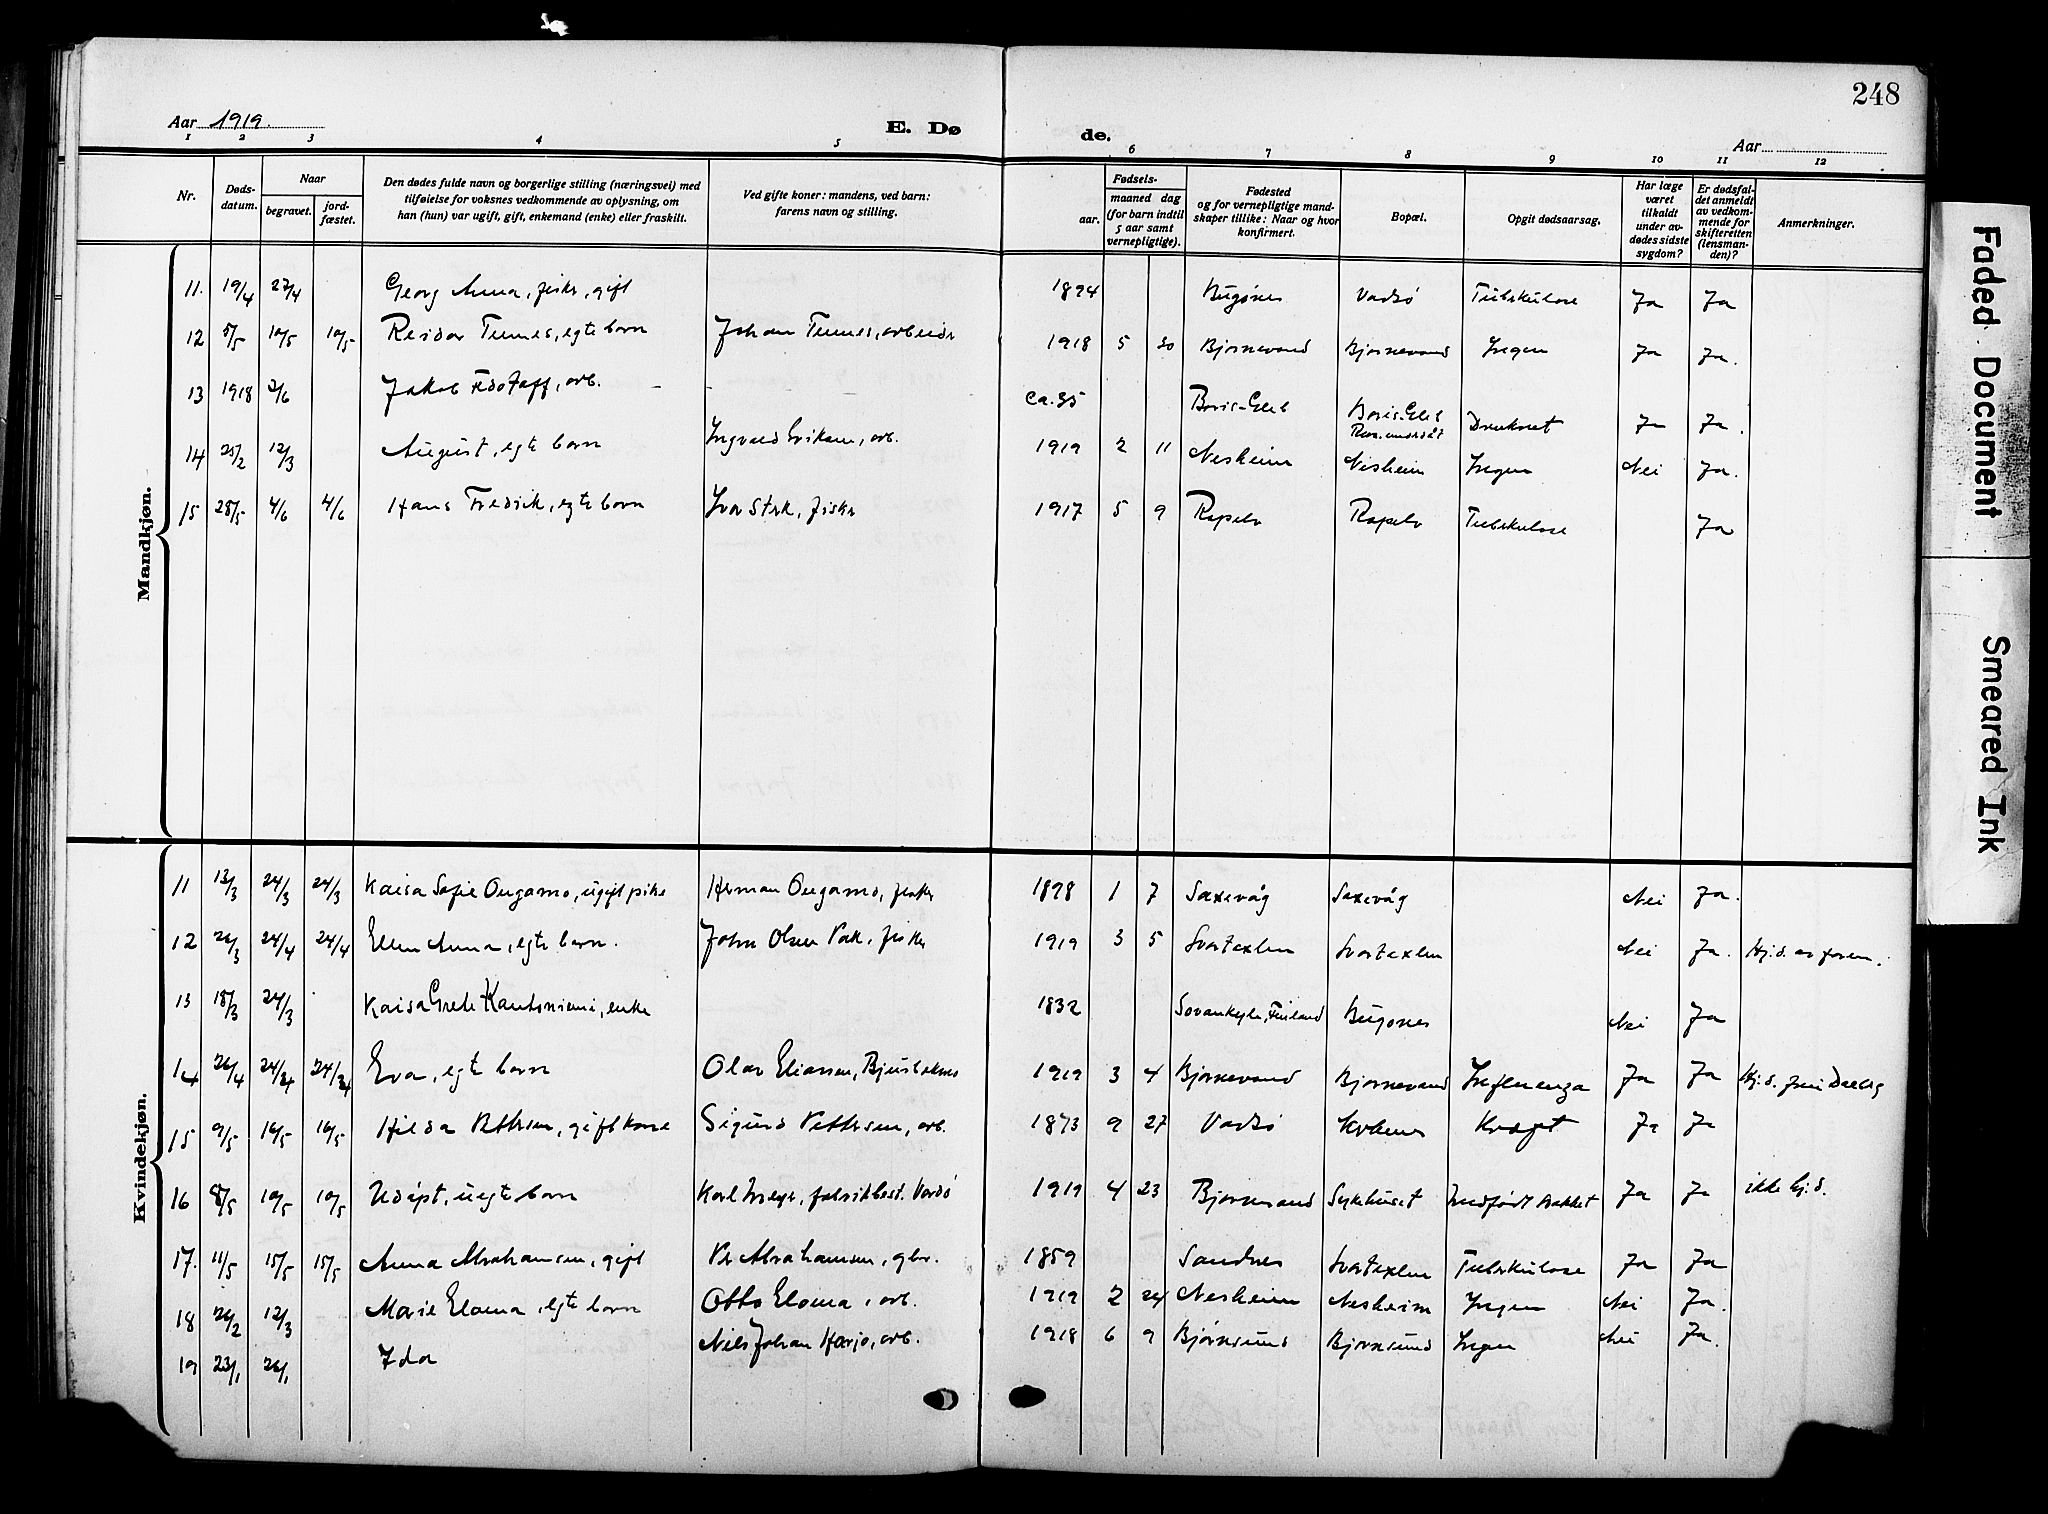 248
Aar 1919.
E. Døde.
Aar
1 2 3 4 5 6 7 8 9 10 11 12
Nr.
Døds-
datum.
Naar
begravet.
jord-
fæstet.
Den dødes fulde navn og borgerlige stilling (næringsvei) med
tilføielse for voksnes vedkommende av oplysning, om
han (hun) var ugift, gift, enkemand (enke) eller fraskilt.
Ved gifte koner: mandens, ved barn:
farens navn og stilling.
Fødsels-
aar.
maaned dag
(for barn indtil
5 aar samt
vernepligtige).
Fødested
og for vernepligtige mand-
skaper tillike: Naar og hvor
konfirmert.
Bopæl.
Opgit dødsaarsag.
Har læge
været
tilkaldt
under av-
dødes sidste
sygdom?
Er dødsfal-
det anmeldt
av vedkom-
mende for
skifteretten
(lensman-
den)?
Anmerkninger.
Mandkjøn.
11. 19/4 27/4 Georg Anna, fisker, gift 1894 Bugønes Vadsø Tuberkulose Ja Ja
12 5/5 10/5 10/5 Reidar Tennes, egte barn Johan Tennes, arbeider 1918 5 30 Bjørnevand Bjørnevand Ingen Ja Ja.
13 1918 2/6 Jakob, arb. ca. 35 Boris-Gleb Boris-Gleb Druknet Ja Ja.
14 25/2 12/3 August, egte barn Ingvald Eriksen, arb. 1919 2 11 Nesheim Nesheim Ingen Nei Ja.
15 28/5 4/6 4/6 Hans Fredrik, egte barn Ivar, fisker 1917 5 9 Ropelv Ropelv Tuberkulose Ja
Kvindekjøn.
11 13/3 24/3 24/3 Kaisa Sofie Ongamo, ugift pike Herman Ongamo, fisker 1898 1 7 Saxevåg Saxevåg Nei Ja.
12 26/3 24/4 24/4 Ellen Anna, egte barn. John Olsen, fisker 1919 3 5 Svartaxlen Svartaxlen Nei Ja. Hj.d. av faren.
13 18/3 24/3 Kaisa Grete Kautoniemi, enke 1832 Sovankyle, Finland Bugønes Nei Ja
14 26/4 24/4 24/4 Eva, egte barn Olav Eliassen, 1919 3 4 Bjørnevand Bjørnevand Influenza Ja Ja Hj.d.
15 9/5 16/5 16/5 Hilda Pettersen, gift kone Sigurd Pettersen, arb. 1873 9 27 Vadsø Kirkenes Kræft Ja Ja
16 8/5 10/5 10/5 Udøpt, uegte barn Karl, fabrikbest. Vardø 1919 4 23 Bjørnevand Sykehuset Medfødt svakhet Ja Ja ikke hj.d.
17. 11/5 15/5 15/5 Anna Abrahamsen, gift Per Abrahamsen, gbr. 1859 Sandnes Svartaxlen Tuberkulose Ja Ja
18 26/2 12/3 Marie Eloma, egte barn Otto Eloma, arb. 1919 2 24 Nesheim Nesheim Ingen Nei Ja.
19 23/1 26/1 Ida Nils Johan Harjo, arb. 1918 6 9 Bjørnsund Bjørnsund Ingen Nei Ja.
Faded Document
Smeared Ink